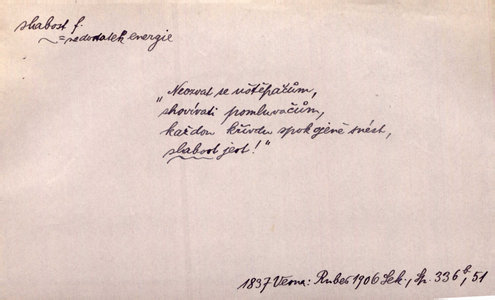 slabost f.
= nedostatek energie
"Neozvat se uštěpačům,
shovívati pomluvačům,
každou křivdu spokojeně snést,
slabost jest!"
1837 Vesna: Rubeš 1906 Sek., Sp. 336 b, 51